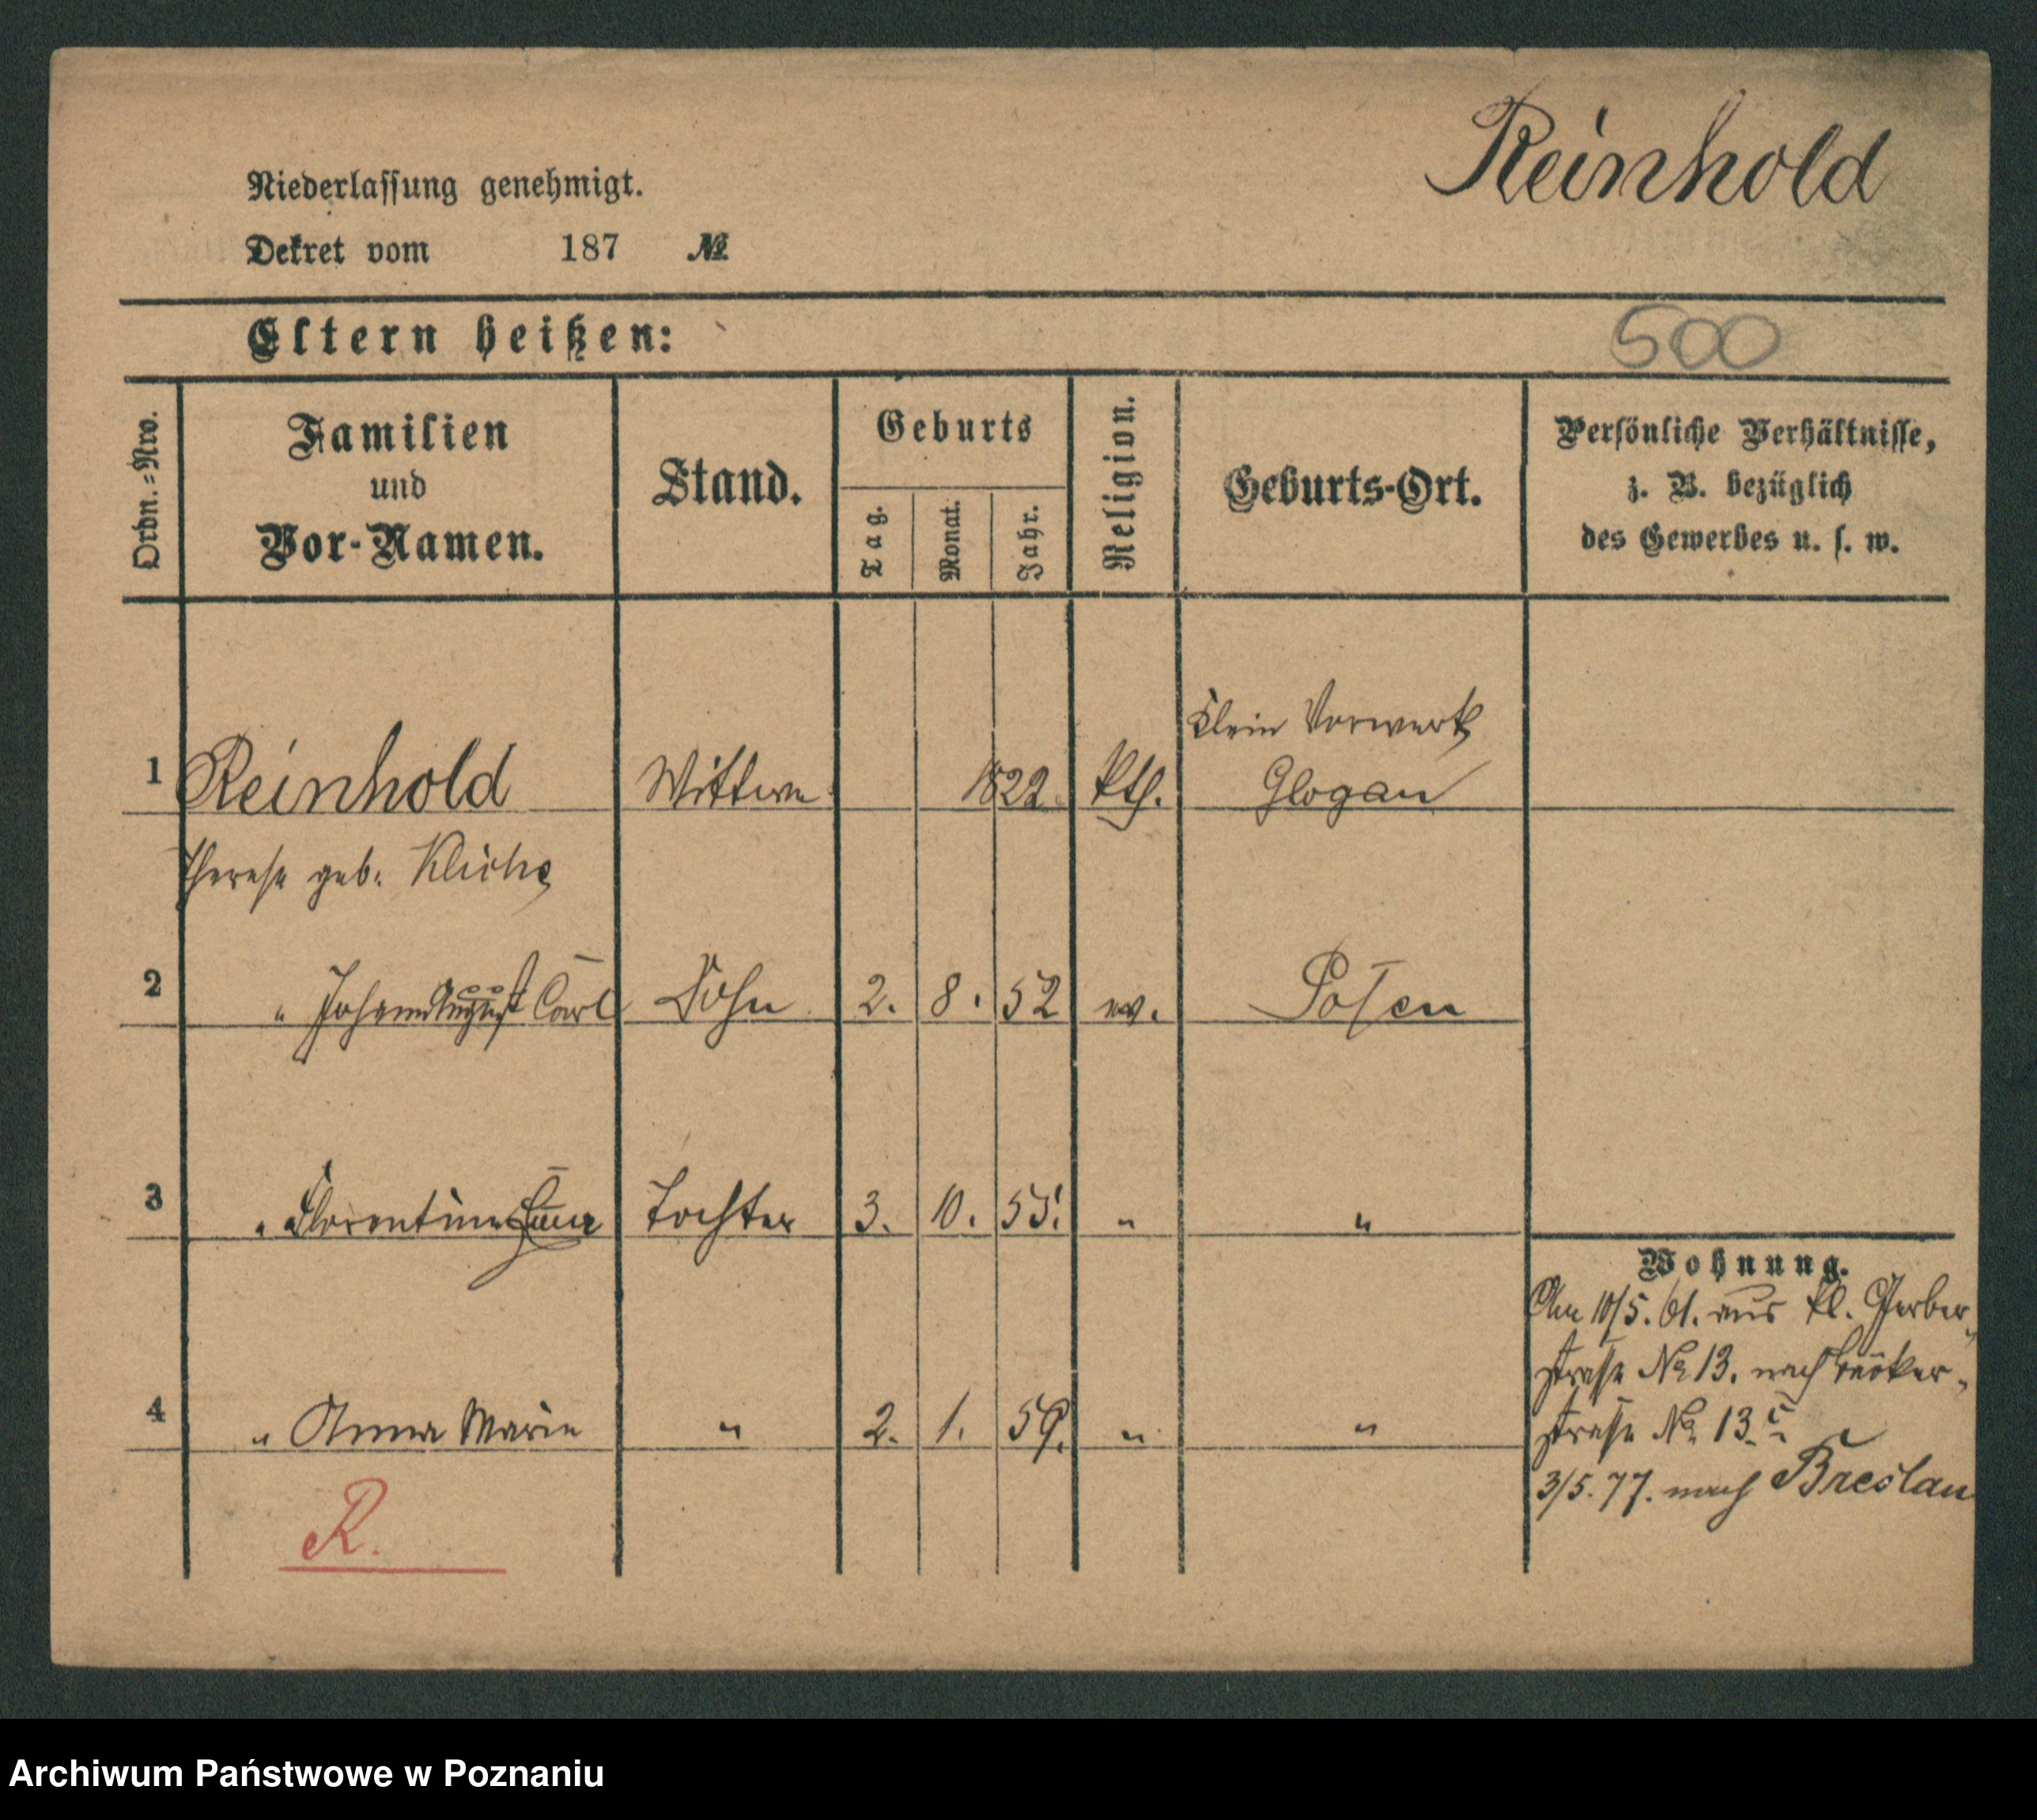 Reinhold
Niederlassung genehmigt.
Dekret vom 187 №
Eltern heißen:
500
Ordn.=Nro.
Familien
und
Vor-Namen.
Stand.
Geburts
Tag.
Monat.
Jahr.
Religion.
Geburts-Ort.
Persönliche Verhältnisse,
z. B. bezüglich
des Gewerbes u. s. w.
Klein Vorwerk
1 Reinhold Wittwe 1822 kth. Glogau
Therese geb.
2 " Johann August Carl Sohn 2. 8. 52 ev. Posen
3 " Florentine Tochter 3. 10. 55. " "
4 " Anna Marie " 2. 1. 59. " "
Wohnung.
Am 10/5. 61. aus kl. Gerber-
strasse No 13. nach
strasse No. 13.
3/5. 77. nach Breslau
R.
Archiwum Państwowe w Poznaniu